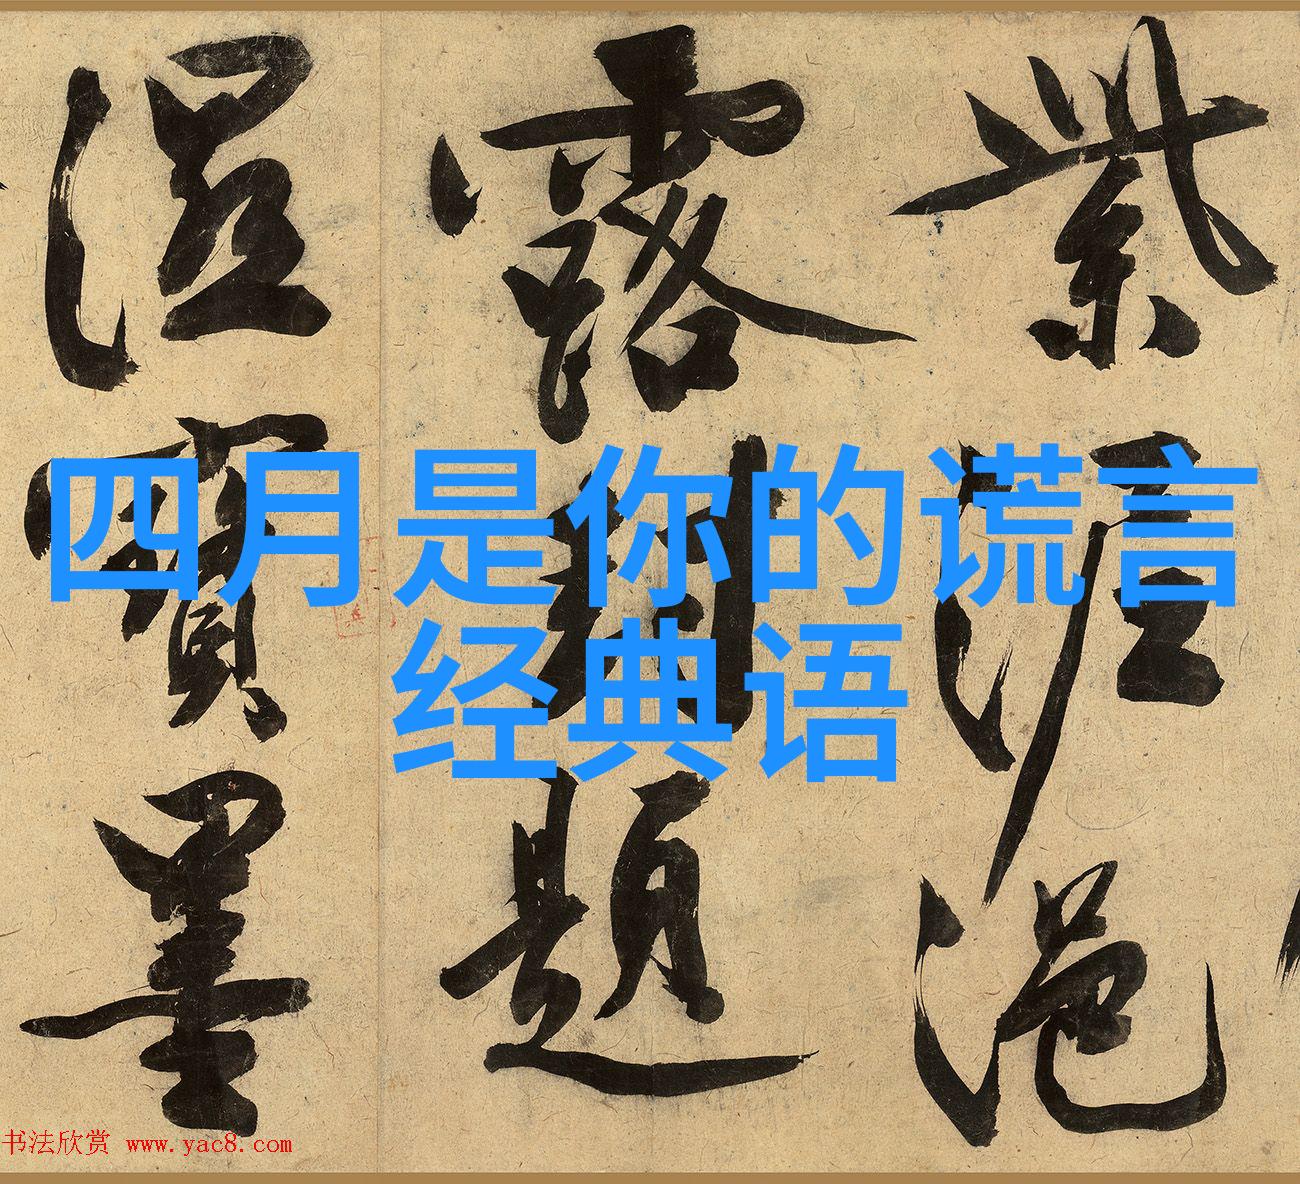 四月是你的谎言
经典语
紫泥浥
露題
湿寶墨
书法欣赏 www.yac8.com